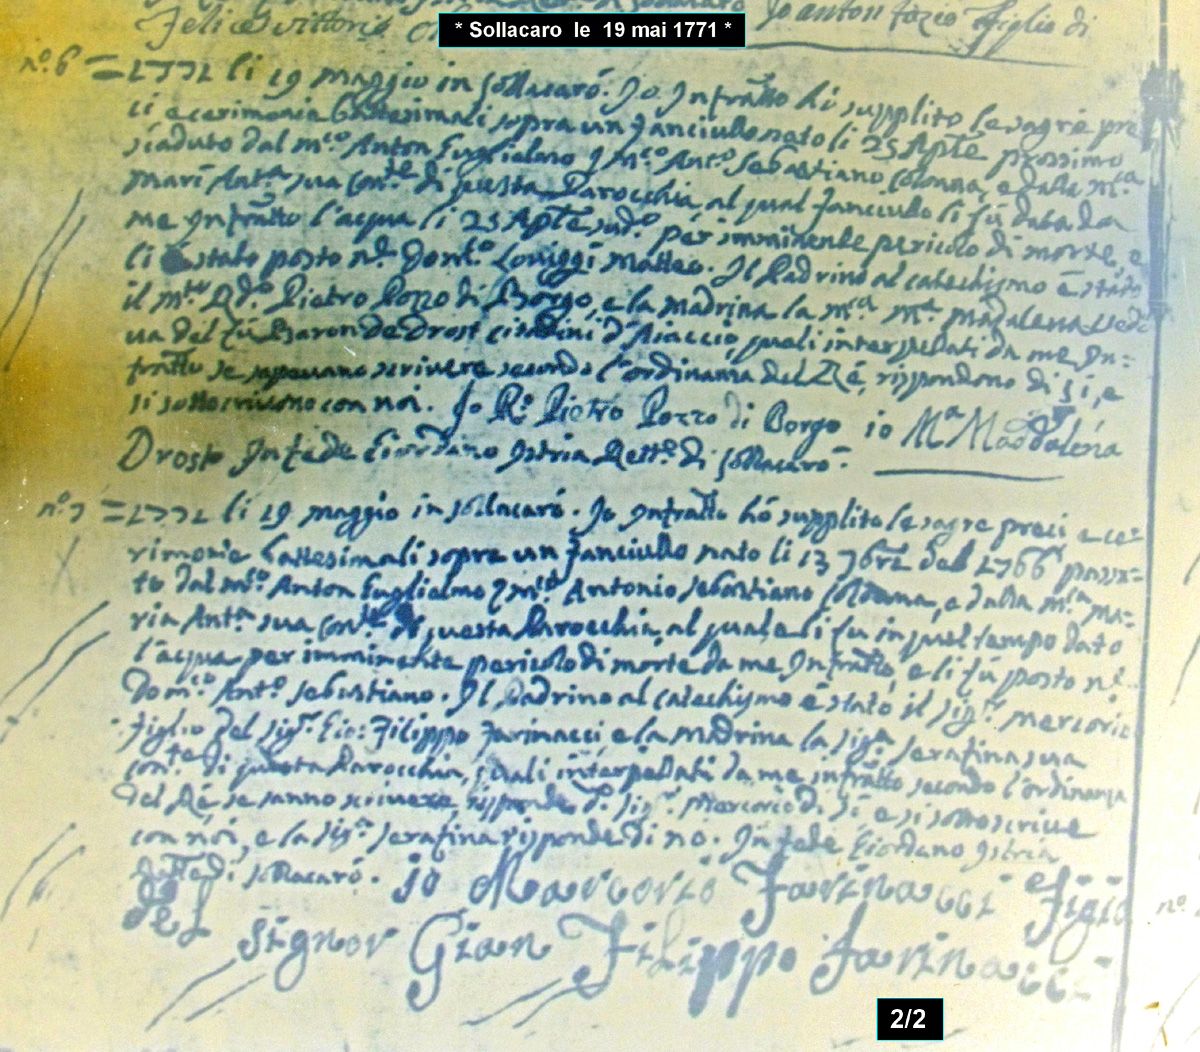 * Sollacaro le 19 mai 1771 *
Felice Vittorio Io Anton Fazio figlio di
n.º 6 = 1771 li 19 maggio in Sollacarò. Io Infratto hò supplito le sagre pre
ci e cerimonie battesimali sopra un fanciullo nato li 25 Aple prossimo
scaduto dal m.co Anton Guglielmo q m.co Ant.º Sebastiano Colonna, e dalla m.ca
Mari Ant.a sua con.te di questa Parocchia, al qual fanciullo li fù data da
me Infratto l'acqua li 25 Aple sud.º per imminente pericolo di morte, e
li è stato posto n.e Dom.co Louiggi Matteo. Il Padrino al catechismo è stato
il m.to R.do Pietro Pozzo di Borgo, e la madrina la m.ca m.a Madalena Ved
ua del fù Baron de Drost cittadini d'Aiaccio, quali interpellati da me In=
fratto se sapeuano scriuere secondo l'ordinanza del Rè, rispondono di si, e
si sottoscriuono con noi. Io R.º Pietro Pozzo di Borgo io M.a Maddalena
Drost In fede Giordano Istria Rett.e di Sollacarò.
n.º 7 = 1771 li 19 maggio in Sollacarò. Io Infratto hò supplito le sagre preci e ce=
rimonie battesimali sopra un fanciullo nato li 13 7bre del 1766 passa=
to dal m.co Anton Guglielmo q m.co Antonio Sebastiano Colonna, e dalla m.ca Ma=
ria Ant.a sua con.te di questa Parocchia, al quale li fù in quel tempo dato
l'acqua per imminente pericolo di morte da me Infratto, e li fù posto n.e
Dom.co Ant.º Sebastiano. Il Padrino al catechismo è stato il sig.r Mercorio
figlio del sig.r Gio: Filippo Farinacci, e la Madrina la sig.a Serafina sua
con.te di questa Parocchia, quali interpellati da me infratto secondo l'ordinanza
del Rè se sanno scriuere, risponde d.º sig.r Mercorio di si e si sottoscriue
con noi, e la sig.a Serafina risponde di no. In fede Giordano Istria
Rett.e di Sollacarò. io Marcorio Farinacci figlio
del signor Gian Filippo Farinacci
n.º
2/2